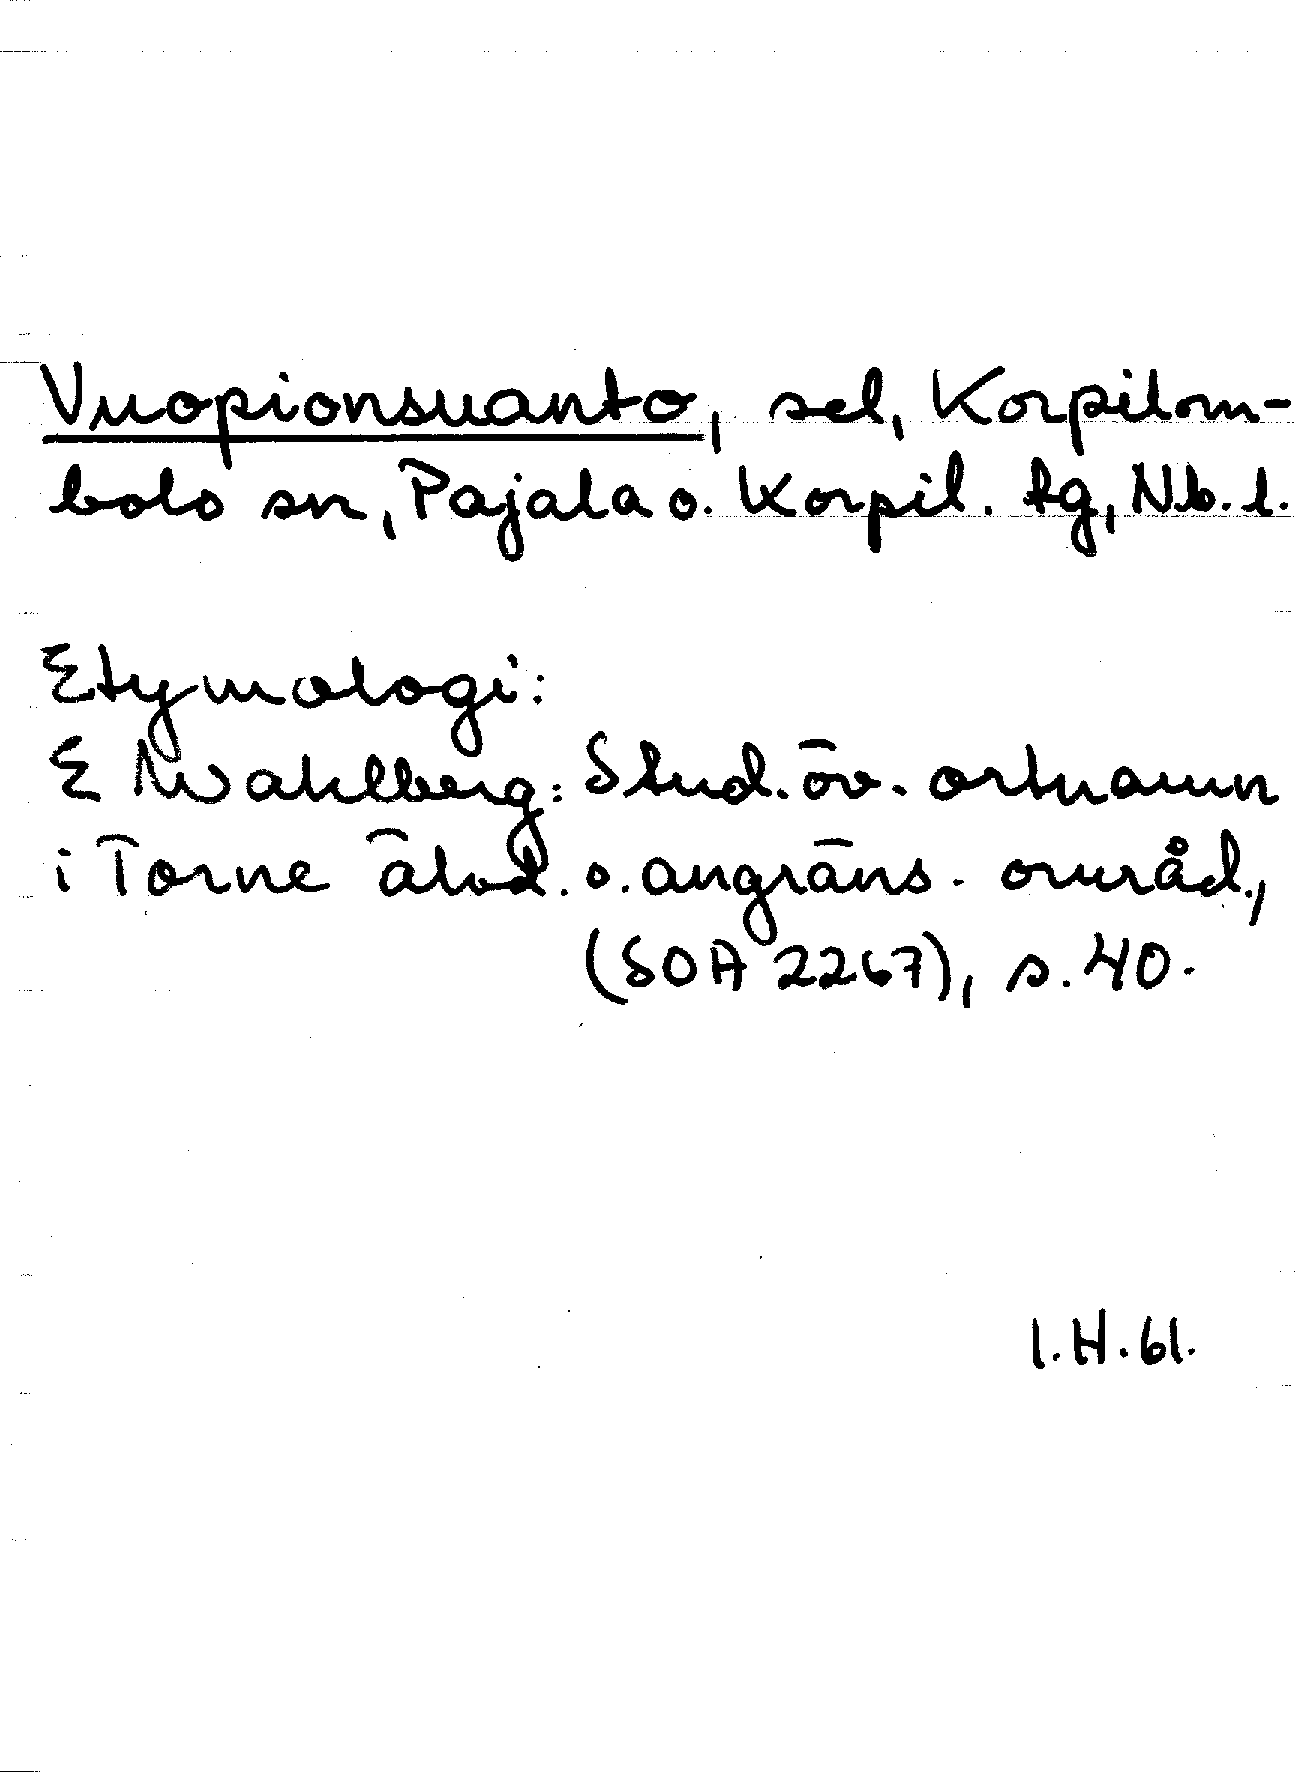 Vuopionsuanto, sel, Korpilom-
bolo sn, Pajala o. Korpil. tg, N.b. l.
Etymologi:
E Wahlberg: Stud. öv. ortnamn
i Torne älvd. o. angräns. områd.,
(SOA 2267), s. 40.
I.H. 61.